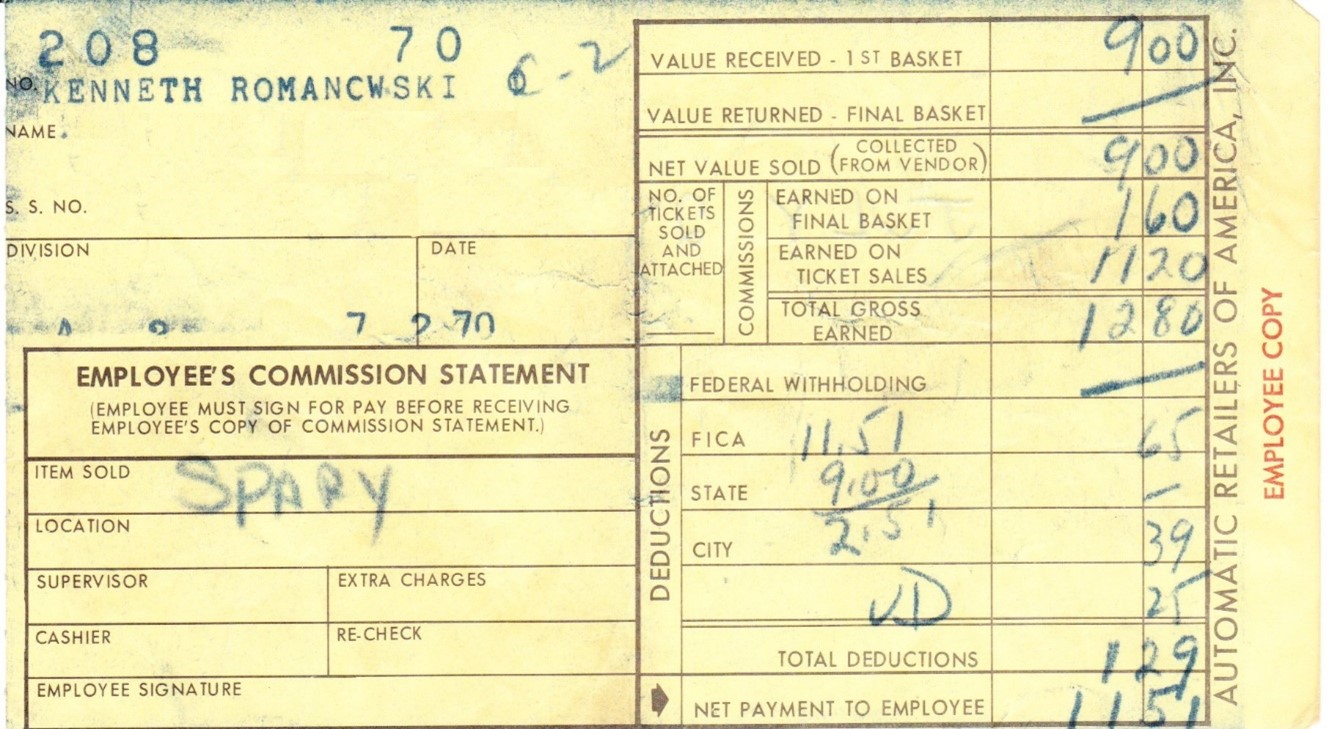 208 70
NO. KENNETH ROMANCWSKI 6-2
NAME.
S. S. NO.
DIVISION DATE
7 2 70
EMPLOYEE'S COMMISSION STATEMENT
(EMPLOYEE MUST SIGN FOR PAY BEFORE RECEIVING
EMPLOYEE'S COPY OF COMMISSION STATEMENT.)
ITEM SOLD SPARY
LOCATION
SUPERVISOR EXTRA CHARGES
CASHIER RE-CHECK
EMPLOYEE SIGNATURE
VALUE RECEIVED - 1ST BASKET 900
VALUE RETURNED - FINAL BASKET —
NET VALUE SOLD (COLLECTED
FROM VENDOR) 900
NO. OF
TICKETS
SOLD
AND
ATTACHED
COMMISSIONS
EARNED ON
FINAL BASKET 160
EARNED ON
TICKET SALES 1120
TOTAL GROSS
EARNED 1280
DEDUCTIONS
FEDERAL WITHHOLDING —
FICA 11.51 65
STATE 9.00 —
2.51
CITY 39
UD 25
TOTAL DEDUCTIONS 129
NET PAYMENT TO EMPLOYEE 1151
AUTOMATIC RETAILERS OF AMERICA, INC.
EMPLOYEE COPY